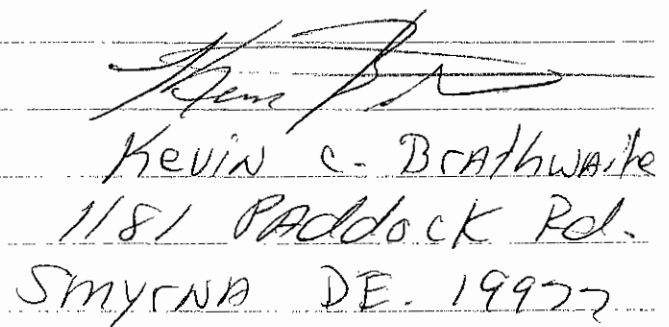 Kevin C. Brathwaite
1181 Paddock Rd.
Smyrna DE. 19977